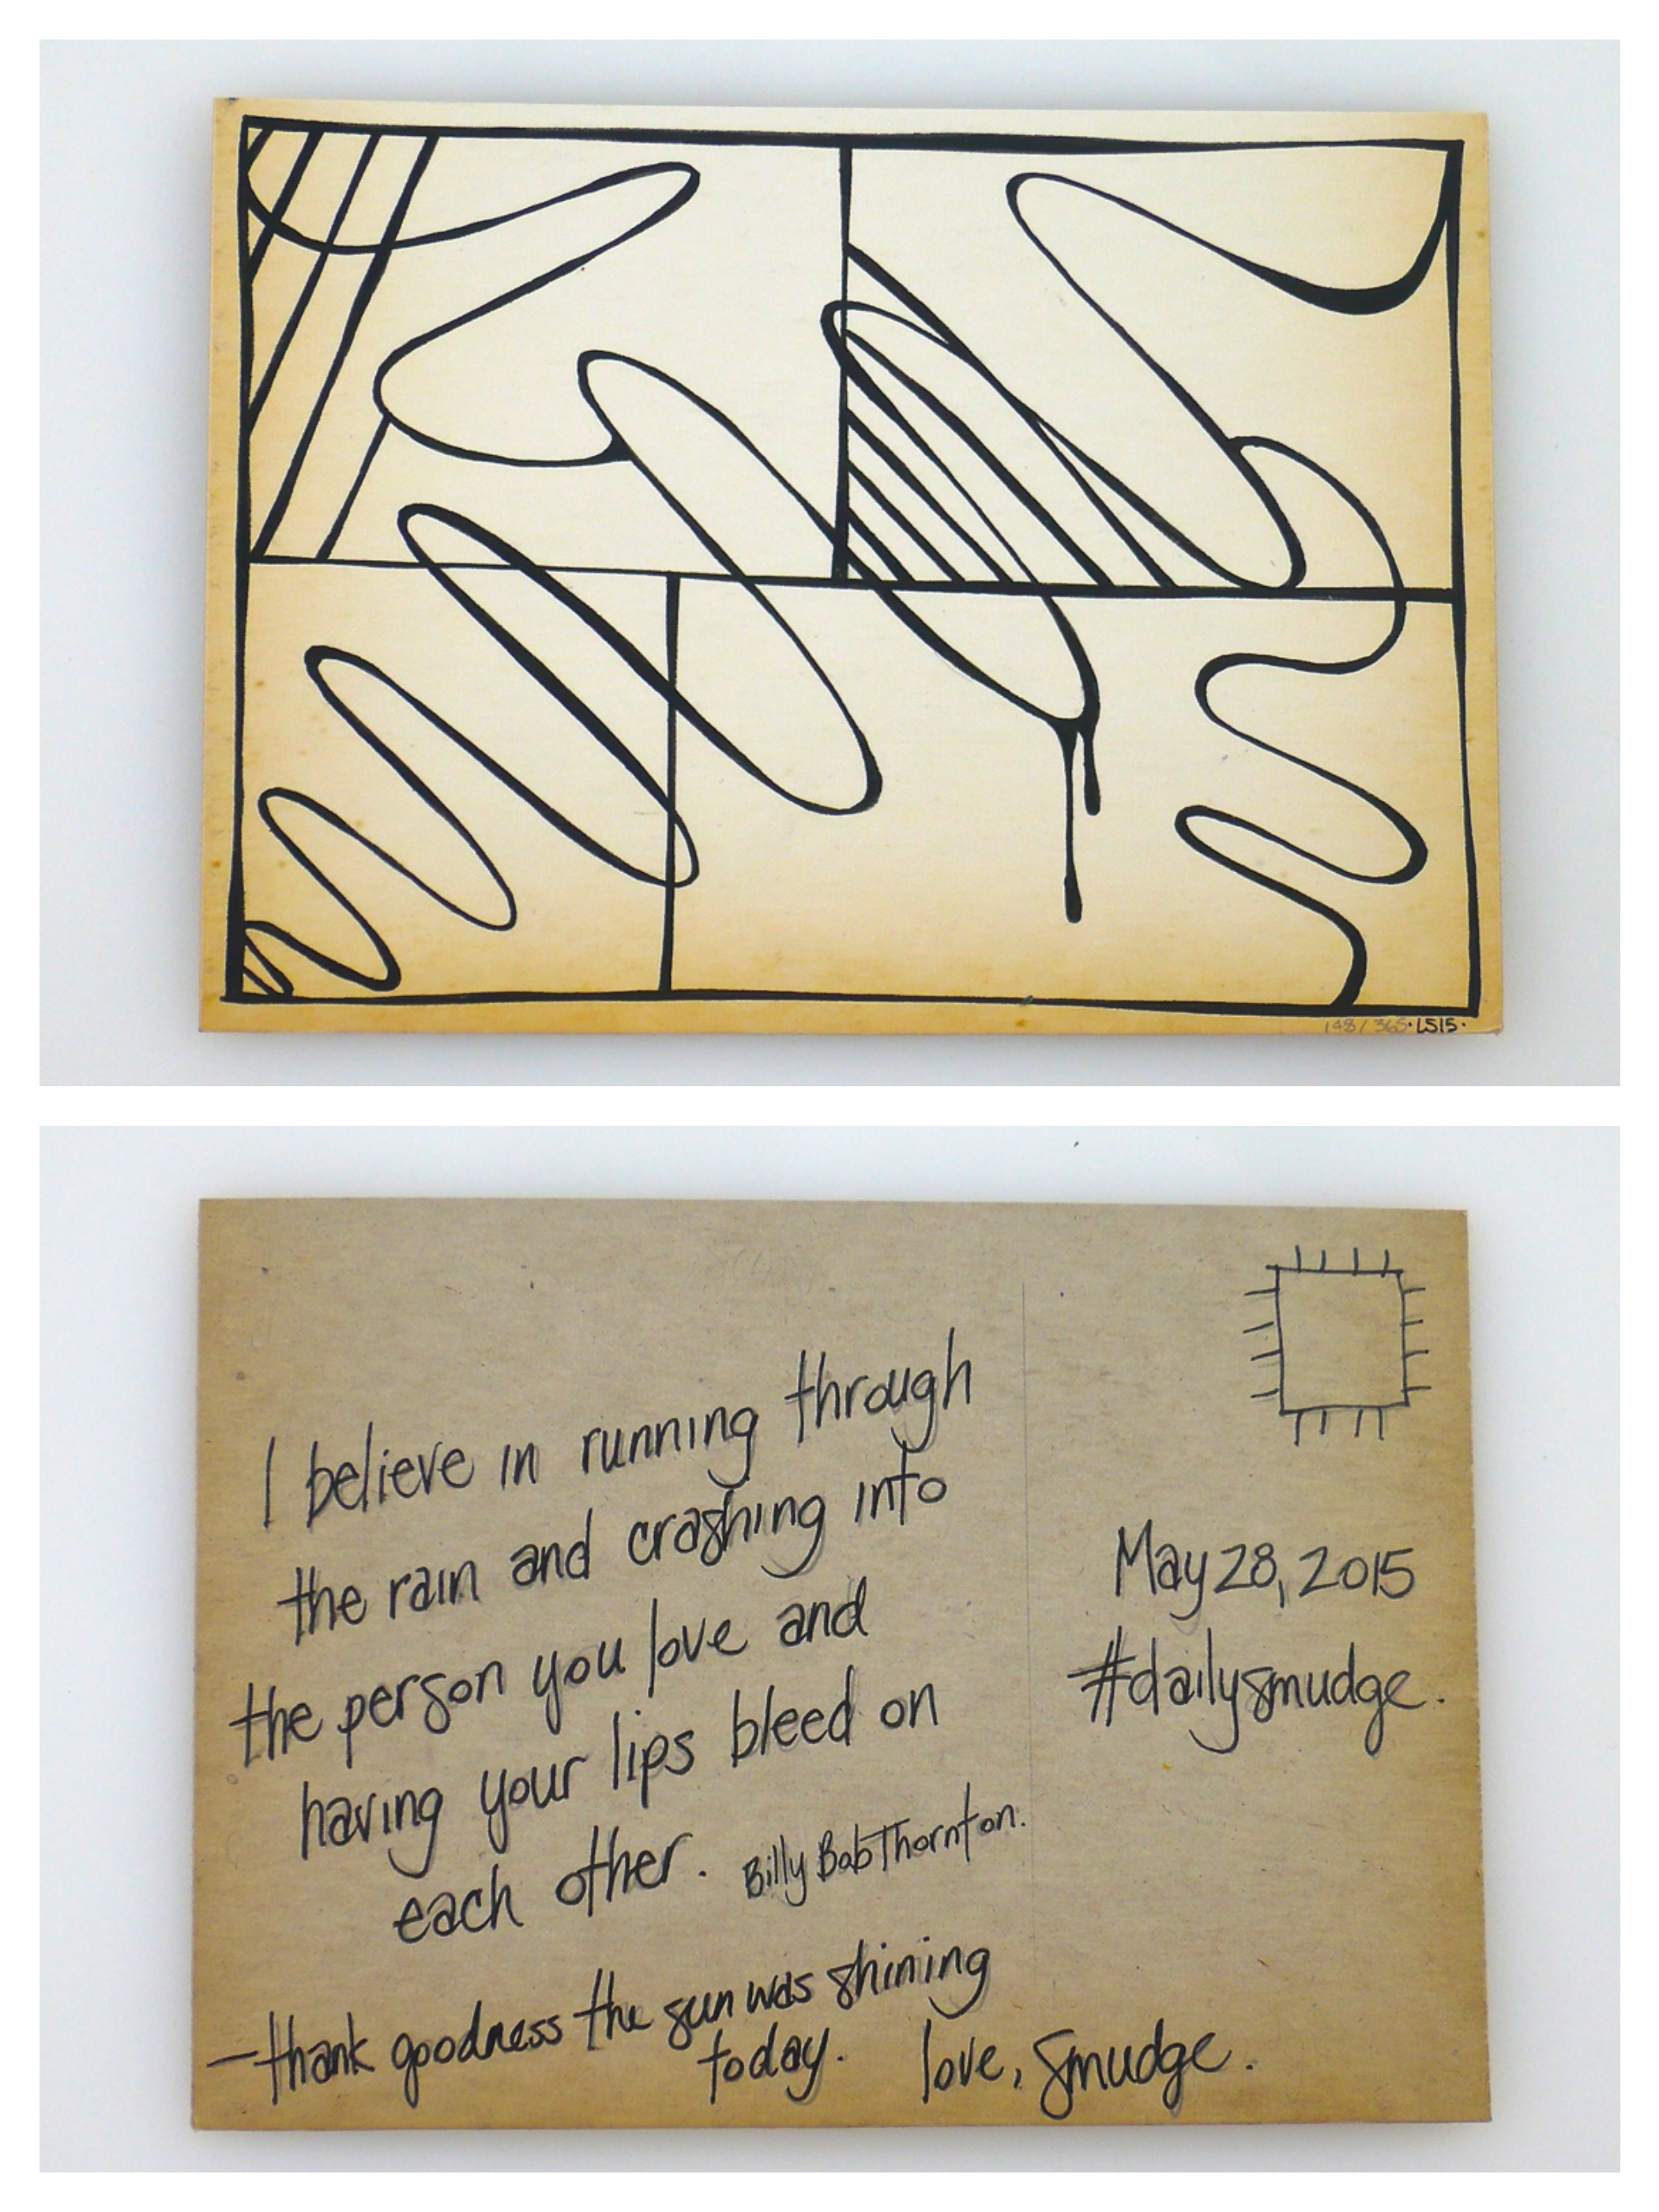 148/365·LS15·
I believe in running through
the rain and crashing into
the person you love and
having your lips bleed on
each other. Billy Bob Thornton.
—thank goodness the sun was shining
today. love, smudge.
May 28, 2015
#dailysmudge.